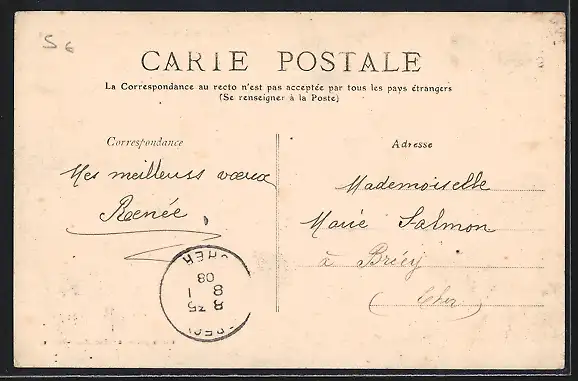 S 6
CARTE POSTALE
La Correspondance au recto n'est pas acceptée par tous les pays étrangers
(Se renseigner à la Poste)
Correspondance
Mes meilleurs vœux
Renée
Adresse
Mademoiselle
Marie Salmon
à Brécy
(Cher)
CHER
08
8 1
8 35